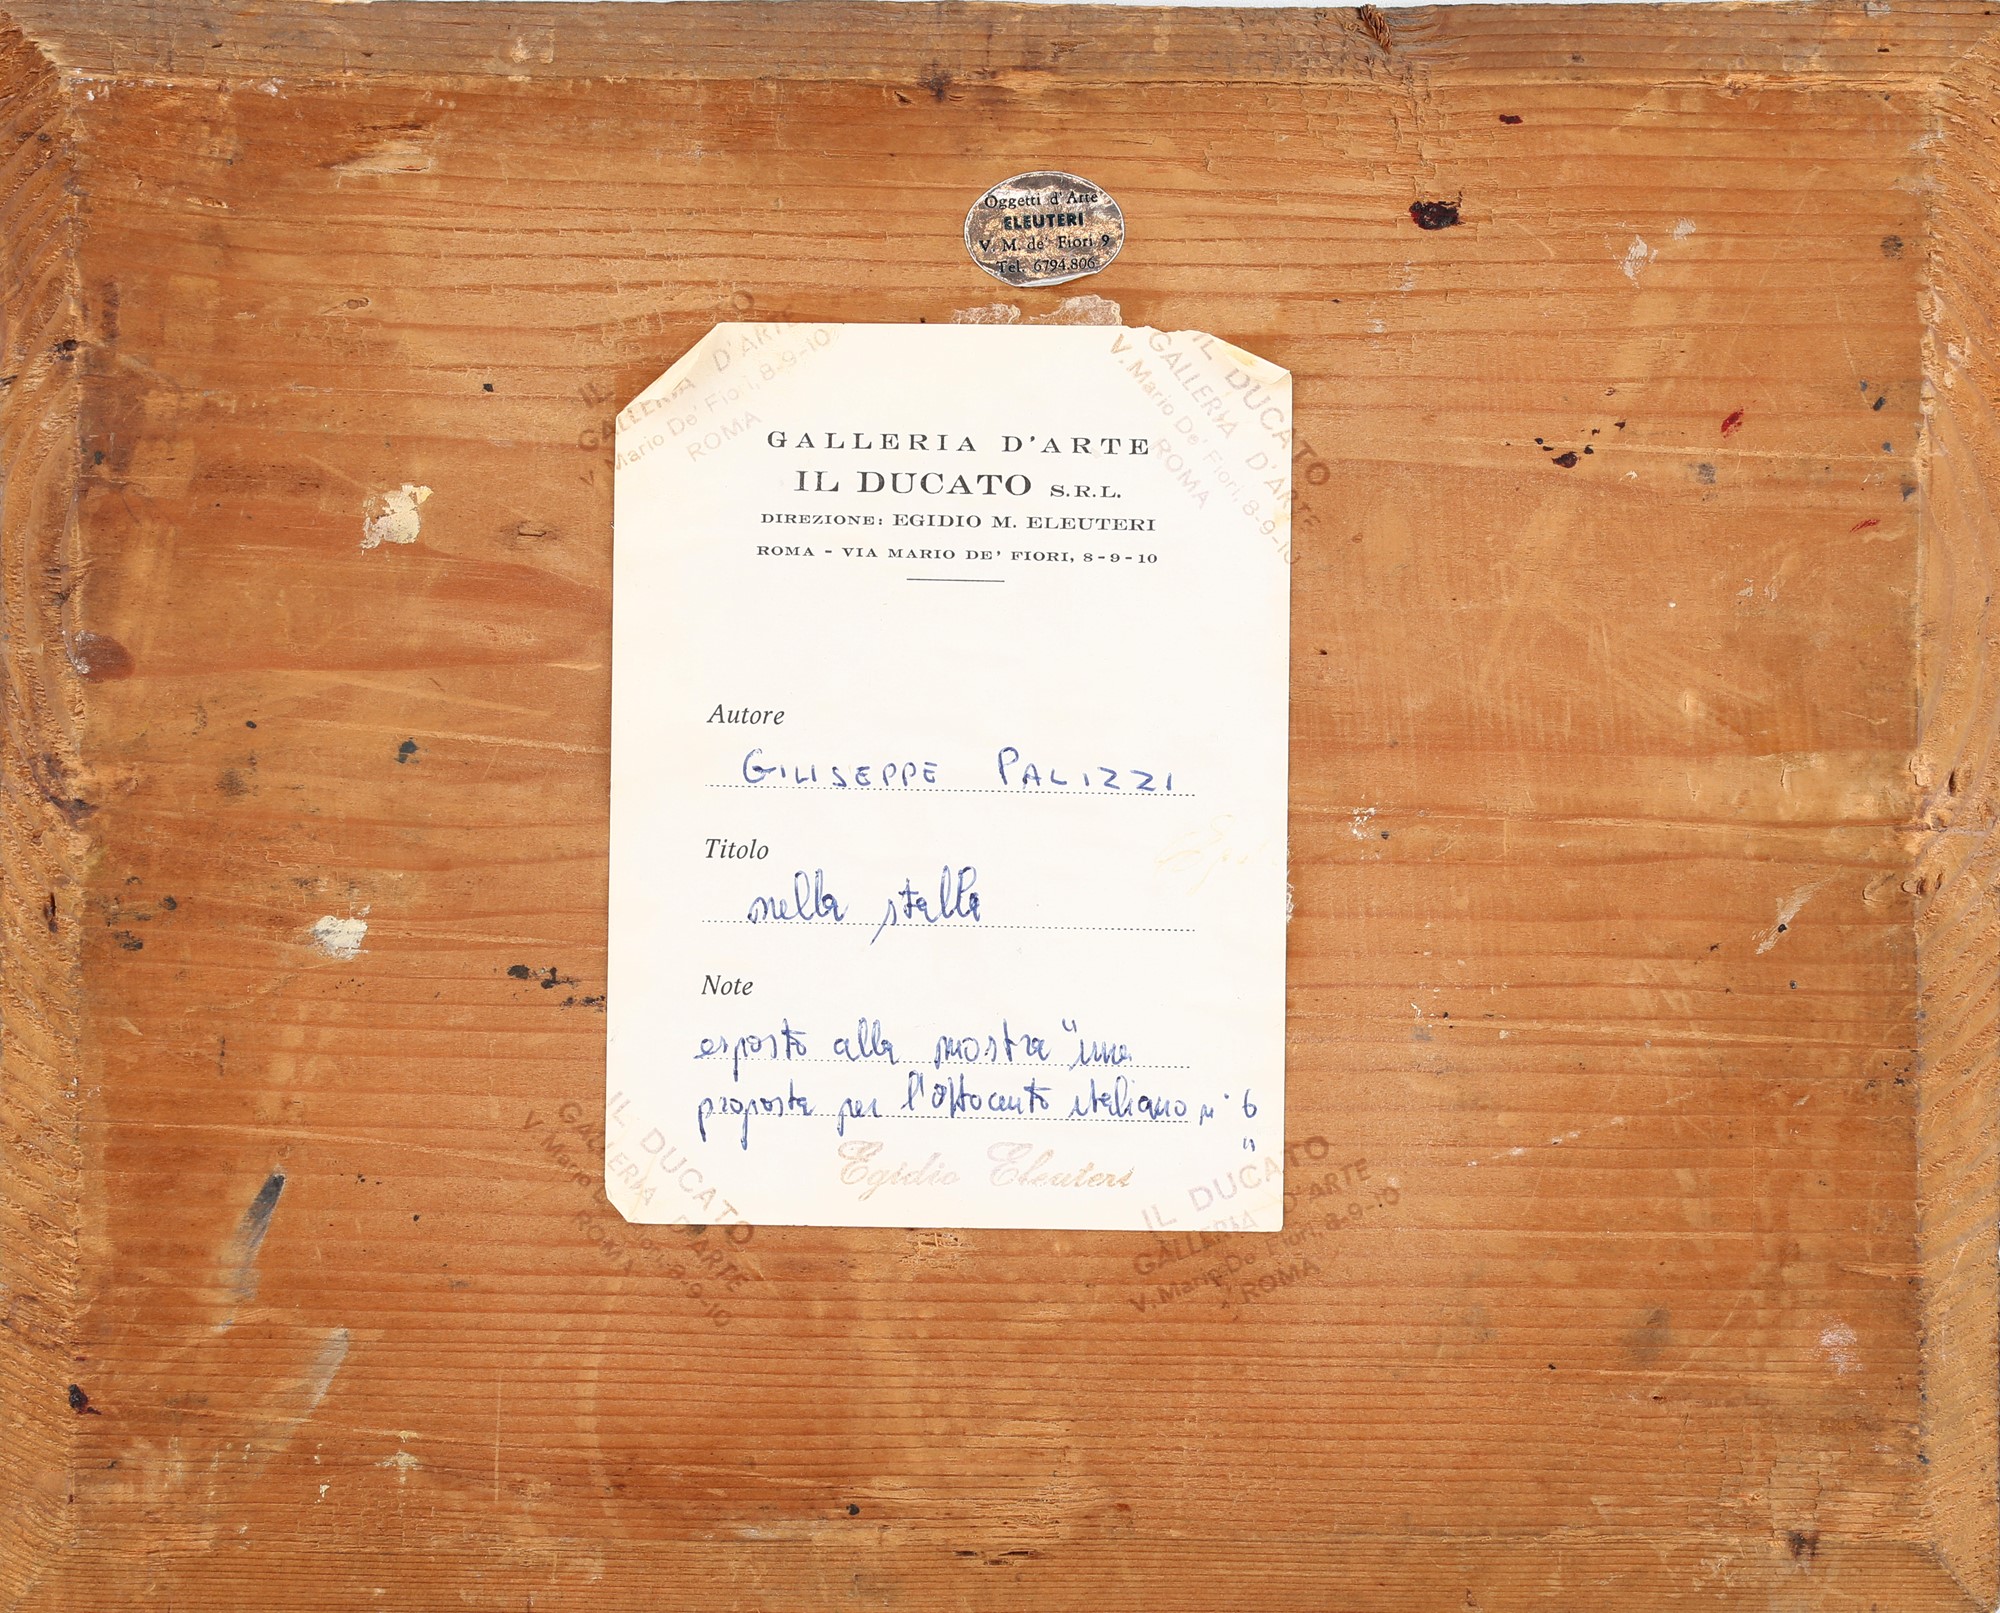 Oggetti d'Arte
ELEUTERI
V. M. de' Fiori 9
Tel. 6794.806
IL
GALLERIA D'ARTE
V. Mario De' Fiori, 8-9-10
ROMA
IL DUCATO
GALLERIA D'ARTE
V. Mario De' Fiori, 8-9-10
ROMA
GALLERIA D'ARTE
IL DUCATO S.R.L.
DIREZIONE: EGIDIO M. ELEUTERI
ROMA - VIA MARIO DE' FIORI, 8-9-10
Autore
GIUSEPPE PALIZZI
Titolo
nella stalla
Note
esposto alla mostra "una
proposta per l'Ottocento italiano n° 6
"
Egidio Eleuteri
IL DUCATO
GALLERIA D'ARTE
V. Mario De' Fiori, 8-9-10
ROMA
IL DUCATO
GALLERIA D'ARTE
V. Mario De' Fiori, 8-9-10
ROMA